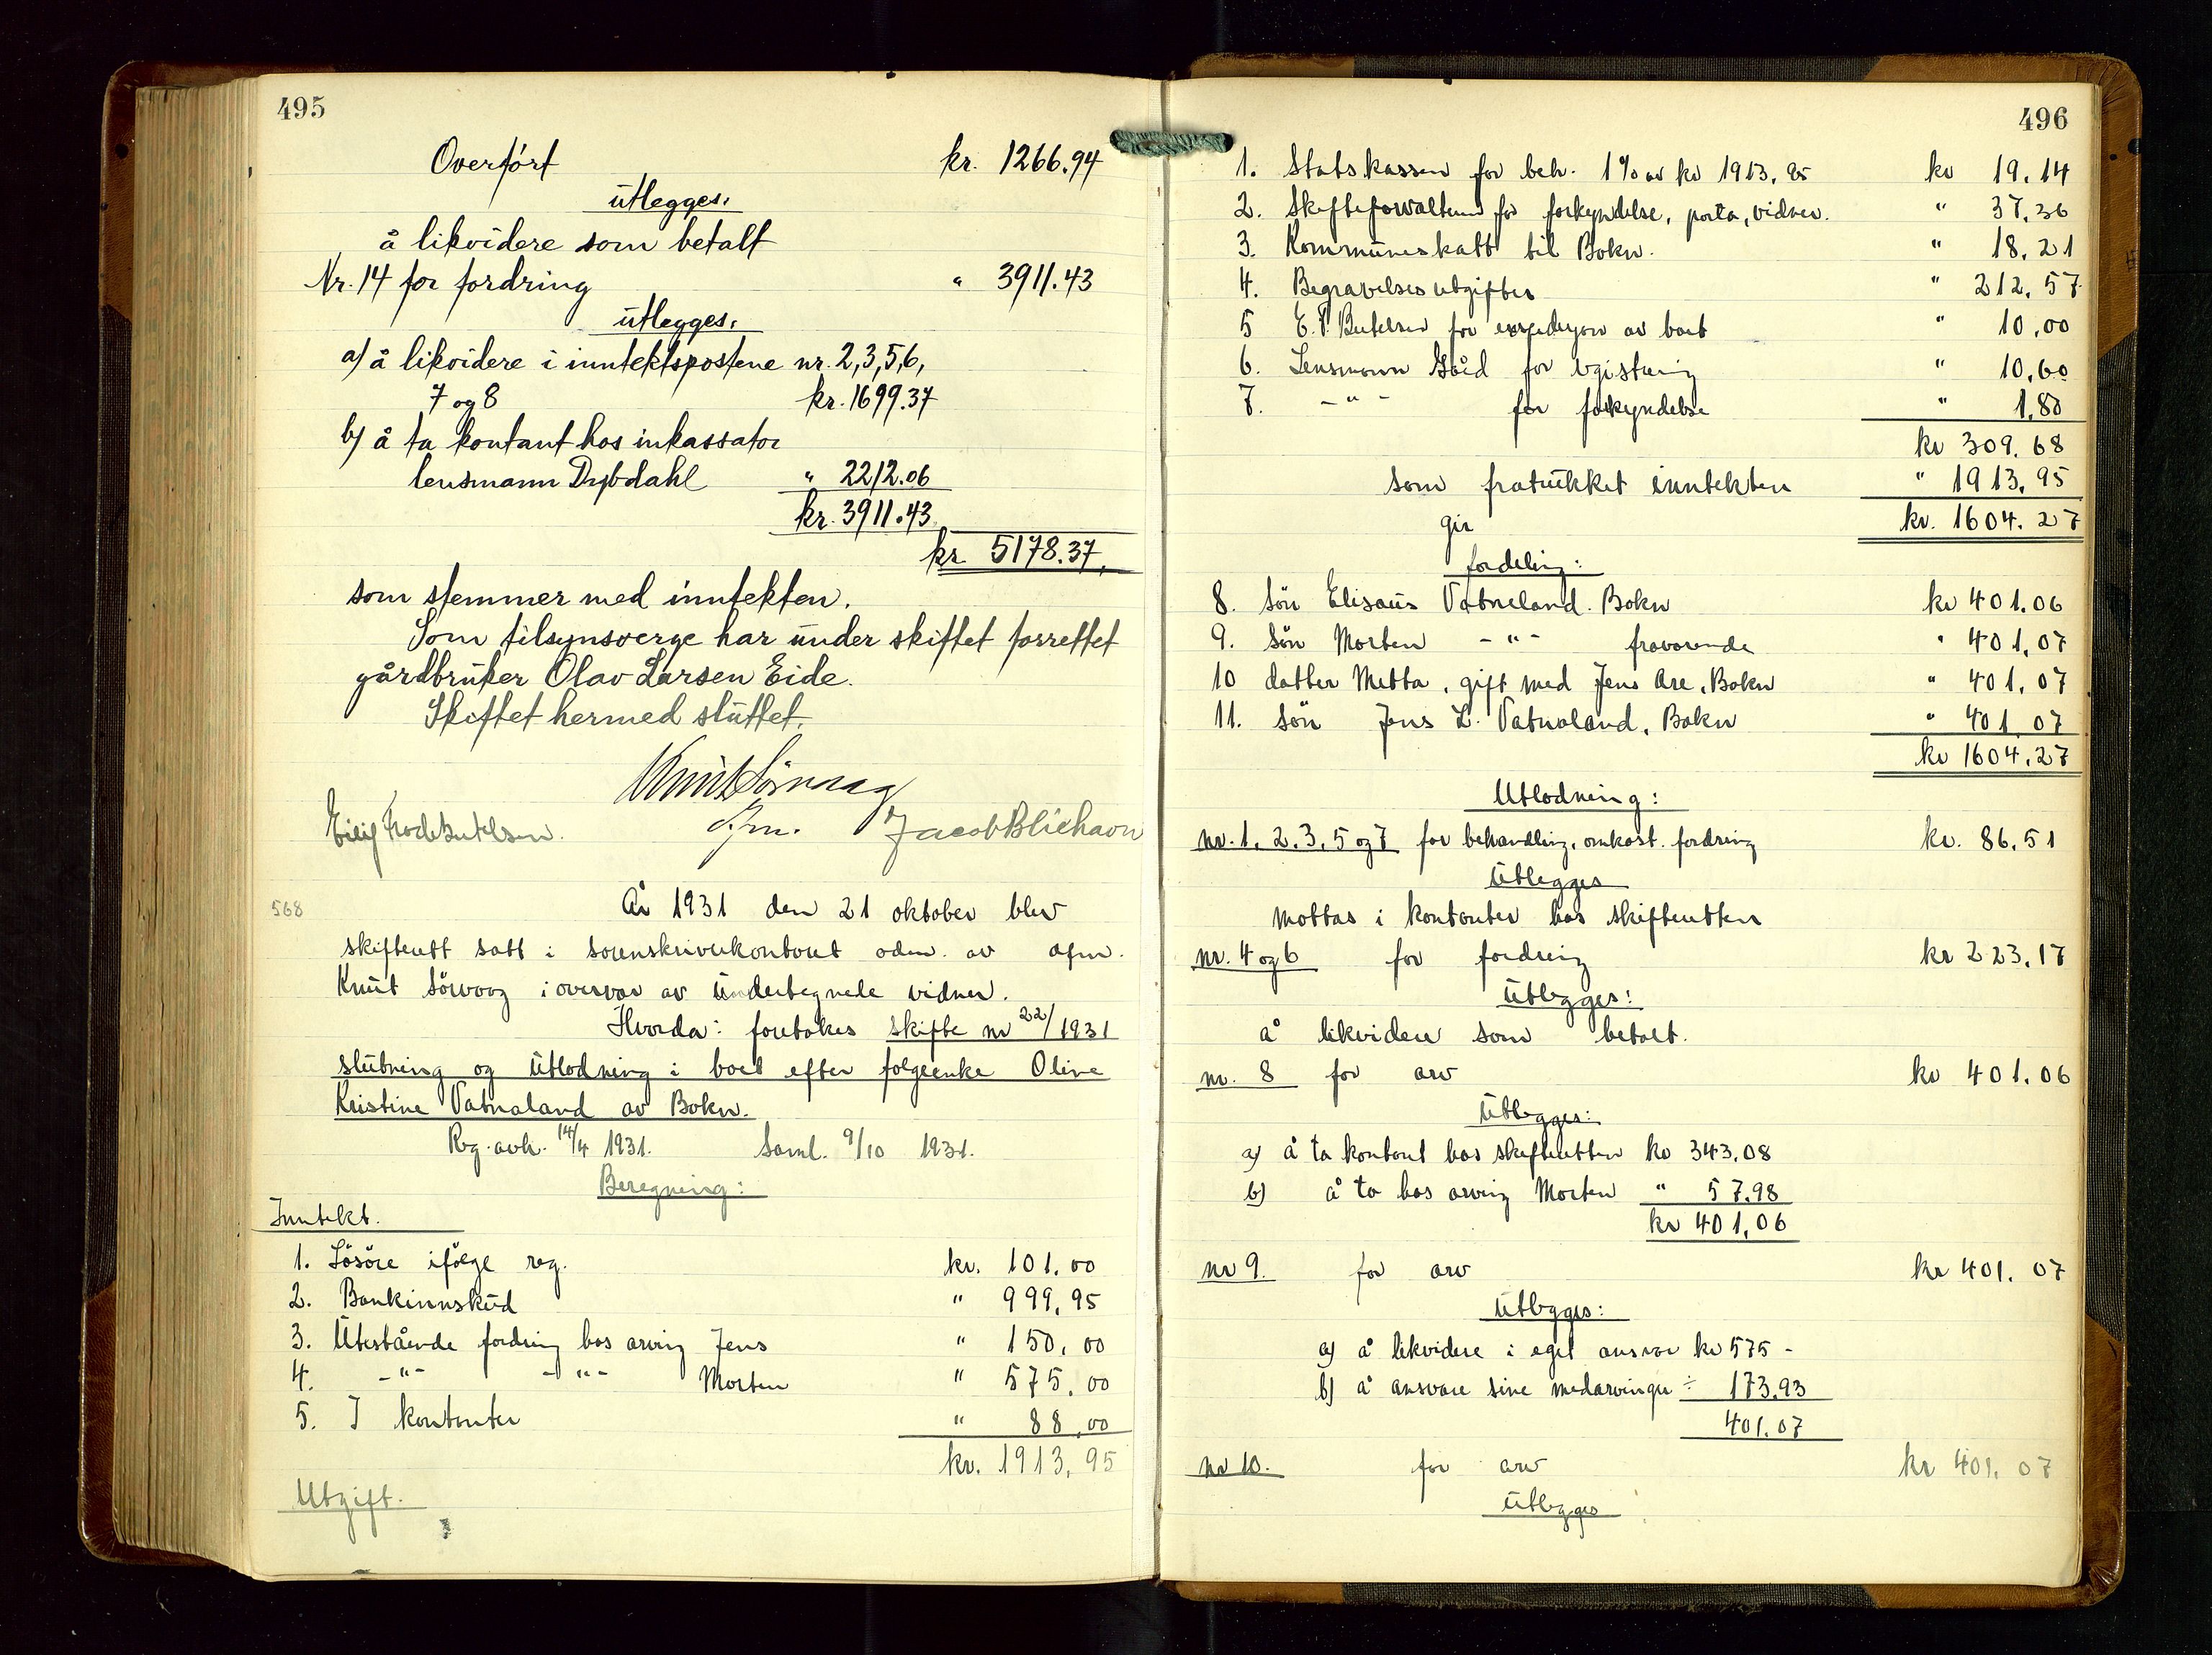 495
Overført kr. 1266.94
utlegges:
å likvidere som betalt
Nr. 14 for fordring " 3911.43
utlegges:
a) å likvidere i inntektspostene nr. 2,3,5,6,
7 og 8 kr. 1699.37
b) å ta kontant hos inkassator
lensmann Dybdahl " 2212.06
kr. 3911.43
kr. 5178.37.
som stemmer med inntekten.
Som tilsynsverge har under skiftet forrettet
gårdbruker Olav Larsen Eide.
Skiftet hermed sluttet.
Knut Sörvaag
Jacob Bliehavn
568
År 1931 den 21 oktober blev
skifterett satt i sorenskriverkontoret adm. av
Knut Sörvaag i overvær av undertegnede vidner.
Hvorda: foretokes skifte nr 22/1931
slutning og utlodning i boet efter folgeenke Oline
Kristine Vatnaland av Bokn.
Reg. avh. 14/4 1931. Saml. 9/10 1931.
Beregning:
Inntekt.
1. Lösöre ifölge reg. kr. 101.00
2. Bankinnskud " 999,95
3. Utestående fordring hos arving Jens " 150,00
4. -"- -"- Morten " 575.00
5. I kontanter " 88,00
kr. 1913,95
Utgift.
496
1. Statskassen for beh. 1% av kr 1913,95 kr 19.14
2. Skifteforvalteren for forkyndelse, porto, vidner. " 37,36
3. Kommuneskatt til Bokn. " 18,21
4. Begravelsesutgifter " 212,57
5 for expedisjon av boet " 10,00
6. Lensmann for registrering " 10,60
7. -"- for forkyndelse " 1,80
kr 309.68
som fratrukket inntekten " 1913,95
gir kr. 1604.27
fordeling:
8. Sön Elisæus Vatneland. Bokn kr 401.06
9. Sön Morten -"- fraværende " 401,07
10 datter Metta, gift med Jens Are, Bokn " 401,07
11. Sön Jens L. Vatnaland, Bokn " 401,07
kr 1604,27
Utlodning:
nr. 1, 2, 3, 5 og 7 for behandling, omkost. fordring kr. 86,51
Utlegges
mottas i kontanter hos skifteretten
nr. 4 og 6 for fordring kr 223,17
Utlegges:
å likvidere som betalt.
nr. 8 for arv kr 401.06
Utlegges:
a) å ta kontant hos skifteretten kr 343,08
b) å ta hos arving Morten " 57,98
kr 401,06
nr 9. for arv kr 401.07
Utlegges:
a) å likvidere i eget ansvar kr 575 -
b) å ansvare sine medarvinger ÷ 173,93
401.07
nr 10. for arv kr 401.07
Utlegges